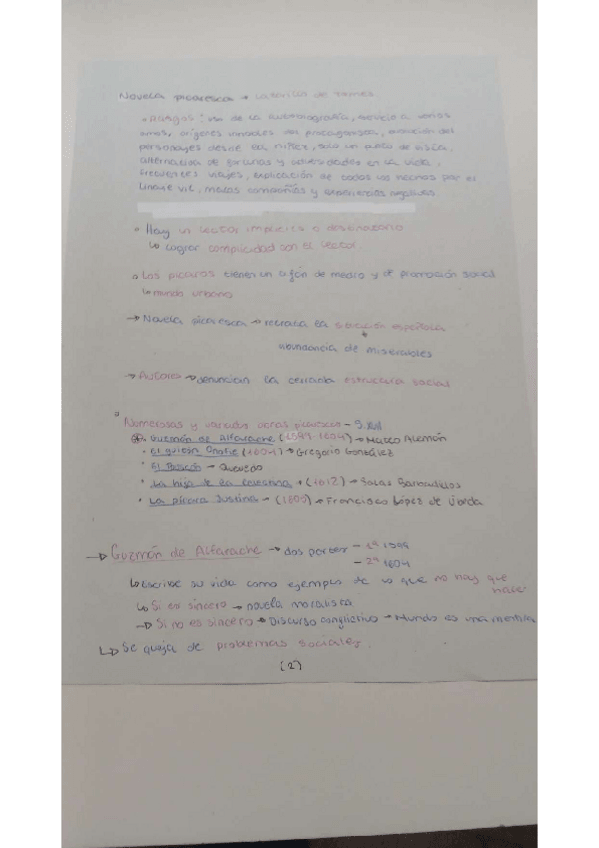 Novela picaresca → Lazarillo de Tormes
• Rasgos: uso de la autobiografía, servicio a varios
amos, orígenes innobles del protagonista, evolución del
personajes desde la niñez, solo un punto de vista,
alternativa de fortunas y adversidades en la vida,
frecuentes viajes, explicación de todos los hechos por el
linaje vil, malas compañías y experiencias negativas.
• Hay un lector implícito o destinatario
↳ lograr complicidad con el lector.
• Los pícaros tienen un afán de medro y de promoción social
↳ mundo urbano
→ Novela picaresca → retrata la sociedad española
↓
abundancia de miserables
→ Autores → denuncian la cerrada estructura social
• Numerosas y variadas obras picarescas - S. XVII
• Guzmán de Alfarache (1599-1604) → Mateo Alemán
• El guitón Onofre (1604) → Gregorio González
• El Buscón → Quevedo
• La hija de la Celestina → (1612) → Salas Barbadillo
• La pícara Justina → (1605) → Francisco López de Úbeda
→ Guzmán de Alfarache → dos partes - 1ª 1599
- 2ª 1604
↳ Escribe su vida como ejemplo de lo que no hay que
hacer
↳ Si es sincero → novela moralista
→ Si no es sincero → Discurso conflictivo → Mundo es una mentira
↳ Se queja de problemas sociales.
(2)